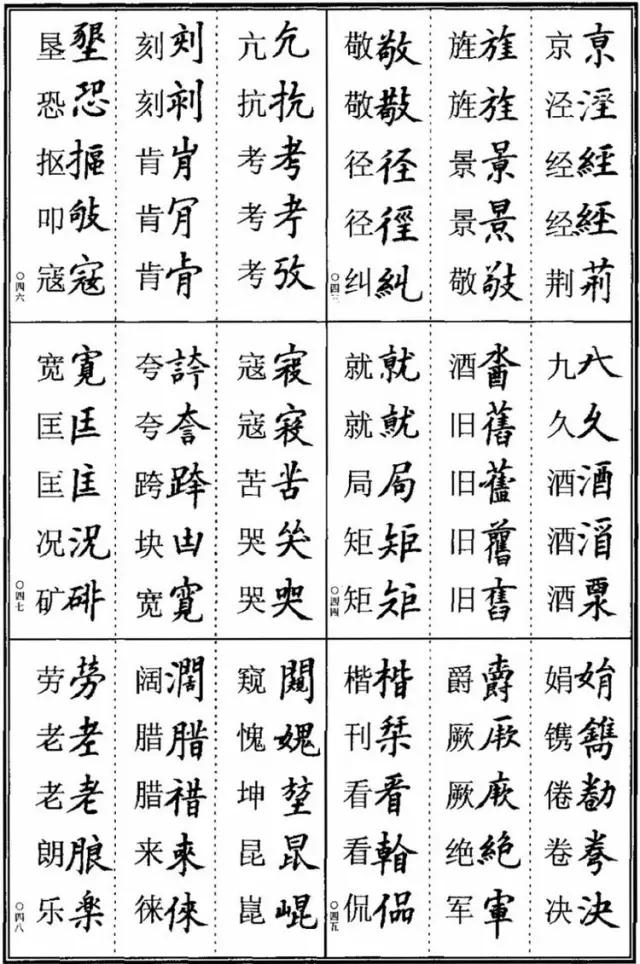 京亰 泾涇 经經 经經 荆荊
旌旌 旌旌 景景 景景 敬敬
敬敬 敬敬 径径 径徑 纠糾
○四三
九九 久久 酒酒 酒酒 酒
酒 旧舊 旧 旧舊 旧
就就 就就 局局 矩矩 矩矩
○四四
娟娟 镌鐫 倦勌 卷 决決
爵爵 厥厥 厥厥 绝絕 军軍
楷楷 刊栞 看看 看 侃偘
○四五
亢亢 抗抗 考考 考考 考攷
刻刻 刻刻 肯肯 肯 肯肯
垦墾 恐恐 抠摳 叩敂 寇寇
○四六
寇寇 寇寇 苦苦 哭 哭
夸誇 夸 跨跨 块凷 宽寬
宽寬 匡匡 匡匡 况況 矿
○四七
窥闚 愧媿 坤堃 昆昆 崑崐
阔濶 腊腊 腊 来來 徕倈
劳勞 老老 老老 朗朖 乐楽
○四八